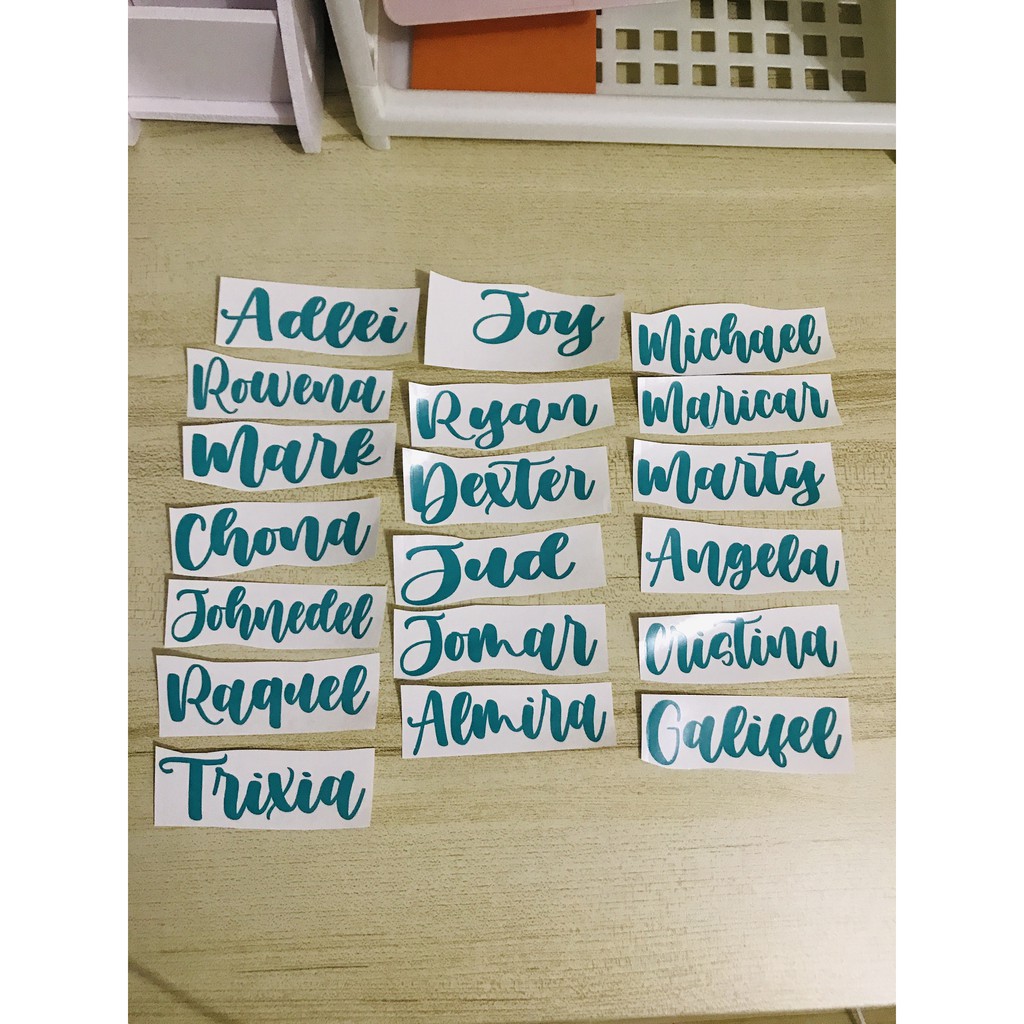 Adlei
Rowena
Mark
Chona
Johnedel
Raquel
Trixia
Joy
Ryan
Dexter
Jud
Jomar
Almira
Michael
Maricar
Marty
Angela
Cristina
Galifel